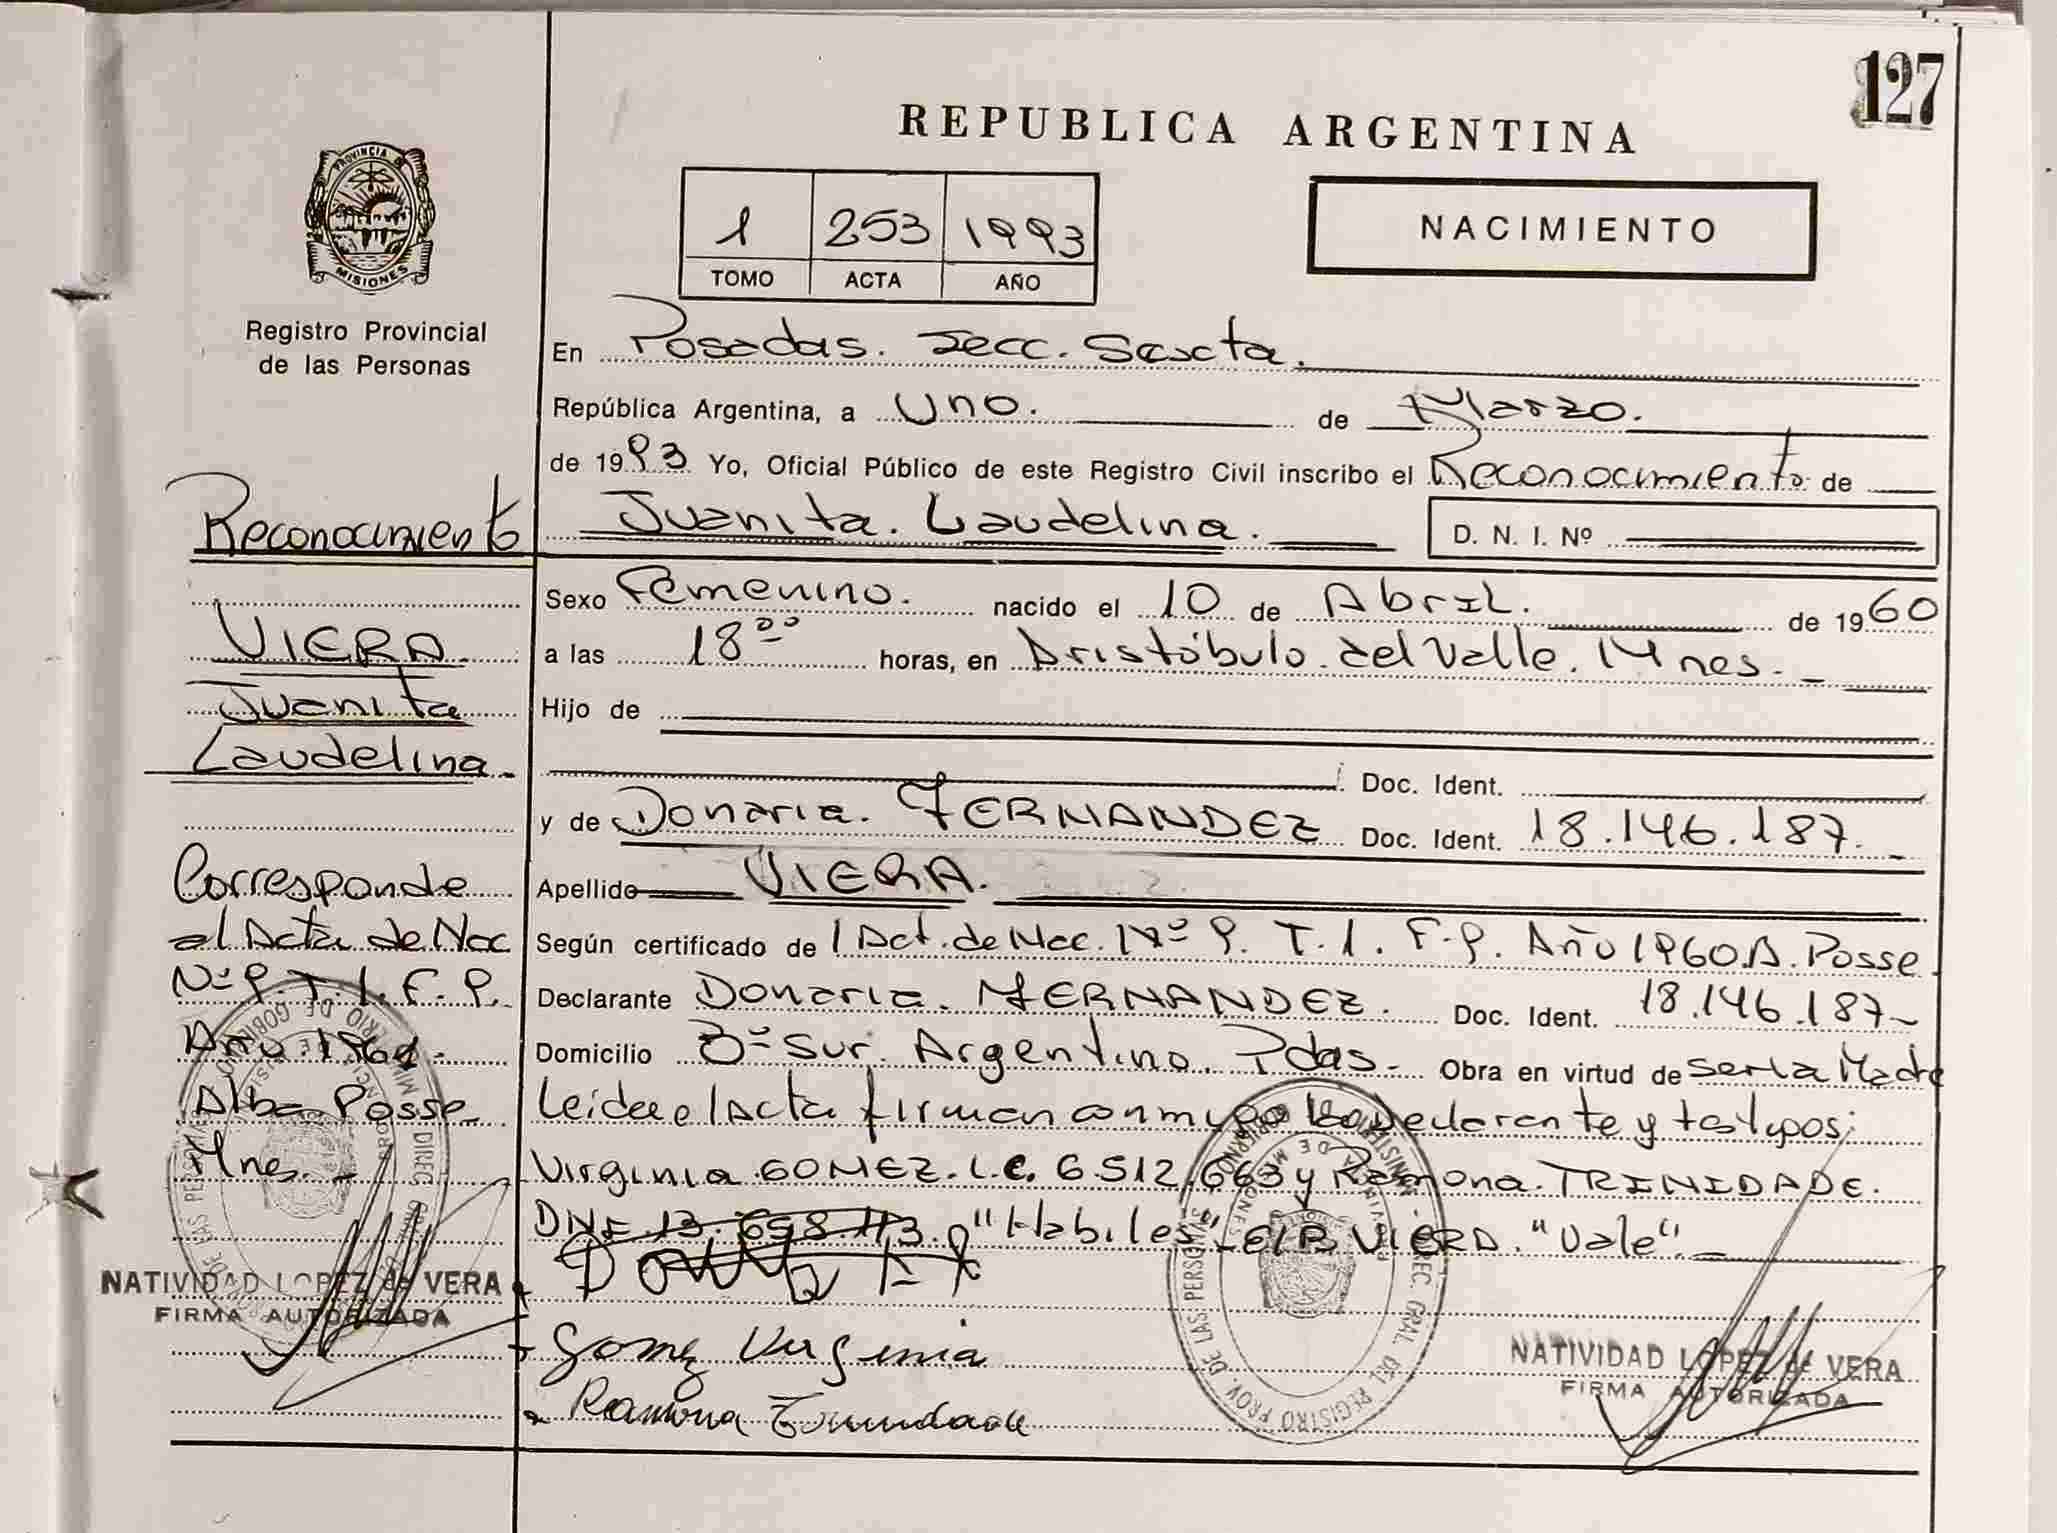 127
REPUBLICA ARGENTINA
PROVINCIA DE
MISIONES
Registro Provincial
de las Personas
1 253 1993
TOMO ACTA AÑO
NACIMIENTO
En Posadas. Secc. Sexta.
República Argentina, a Uno. de Marzo.
de 1993 Yo, Oficial Público de este Registro Civil inscribo el Reconocimiento de
Juanita. Laudelina. D. N. I. Nº
Sexo Femenino. nacido el 10 de Abril. de 1960
a las 18⁰⁰ horas, en Aristóbulo. del Valle. Mnes.
Hijo de
Doc. Ident.
y de Donaria. FERNANDEZ Doc. Ident. 18.146.187.
Apellido VIERA.
Según certificado de 1 Act. de Nac. Nº 9. T. 1. F. 9. Año 1960 A. Posse
Declarante Donaria. FERNANDEZ. Doc. Ident. 18.146.187-
Domicilio Bº Sur. Argentino. Pdas. Obra en virtud de ser la Madre
Leida el Acta firman conmigo la declarante y testigos:
Virginia GOMEZ. L.C. 6.512.663 y Ramona. TRINIDADE.
"Habiles" VIERA. "Vale".
Gomez Virginia
Ramona Trinidade
NATIVIDAD LOPEZ de VERA
FIRMA AUTORIZADA
Reconocimiento
VIERA
Juanita
Laudelina.
Corresponde
al Acta de Nac
Nº 9 T. 1. F. 9.
Año
Alba Posse
Mnes.
NATIVIDAD LOPEZ de VERA
FIRMA AUTORIZADA